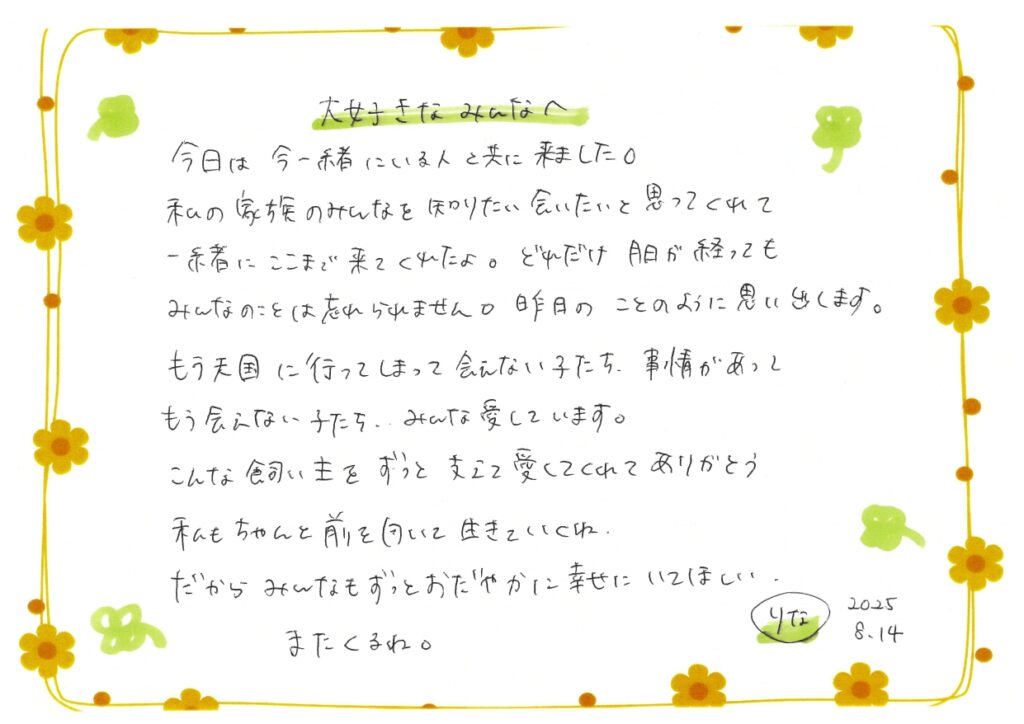 大好きな みんなへ
今日は 今一緒にいる人と共に 来ました。
私の 家族のみんなを 知りたい 会いたいと 思ってくれて
一緒に ここまで 来てくれたよ。 どれだけ 月日が 経っても
みんなのことは忘れられません。 昨日の ことのように 思い出します。
もう天国に行ってしまって 会えない 子たち、 事情があって
もう会えない 子たち.. みんな愛しています。
こんな 飼い主を ずっと 支えて 愛してくれて ありがとう
私も ちゃんと 前を向いて 生きていくね.
だから みんなもずっとおだやかに 幸せに いてほしい.
またくるね。
りな
2025
8.14